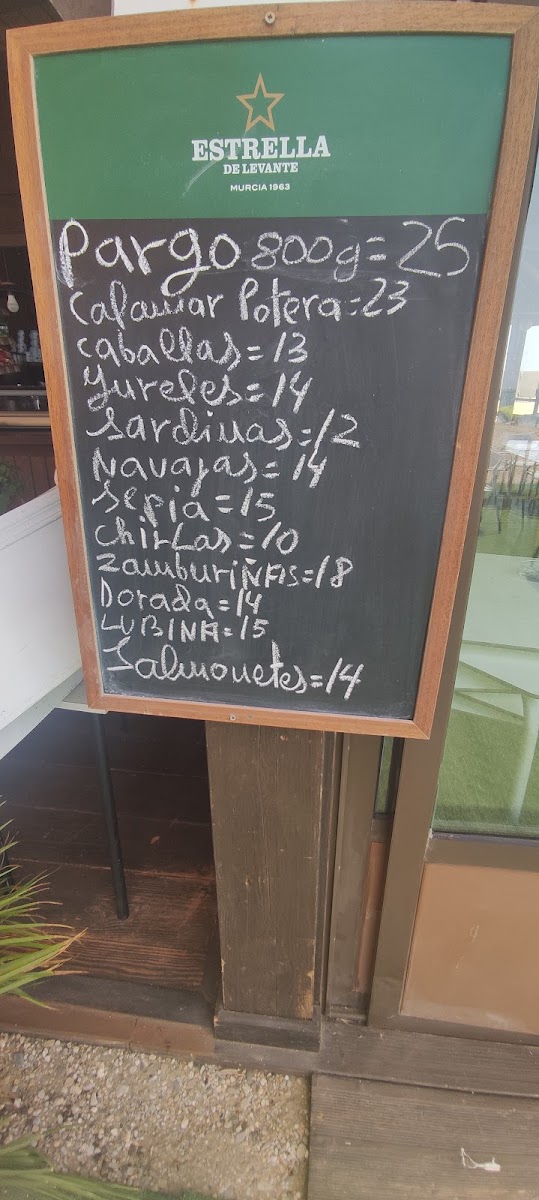 ESTRELLA
DE LEVANTE
MURCIA 1963
Pargo 800g=25
Calamar Potera=23
Caballas=13
Yureles=14
Sardinas=12
Navajas=14
Sepia=15
ChirLas=10
ZamburiÑAS=18
Dorada=14
LUBINA=15
Salmonetes=14